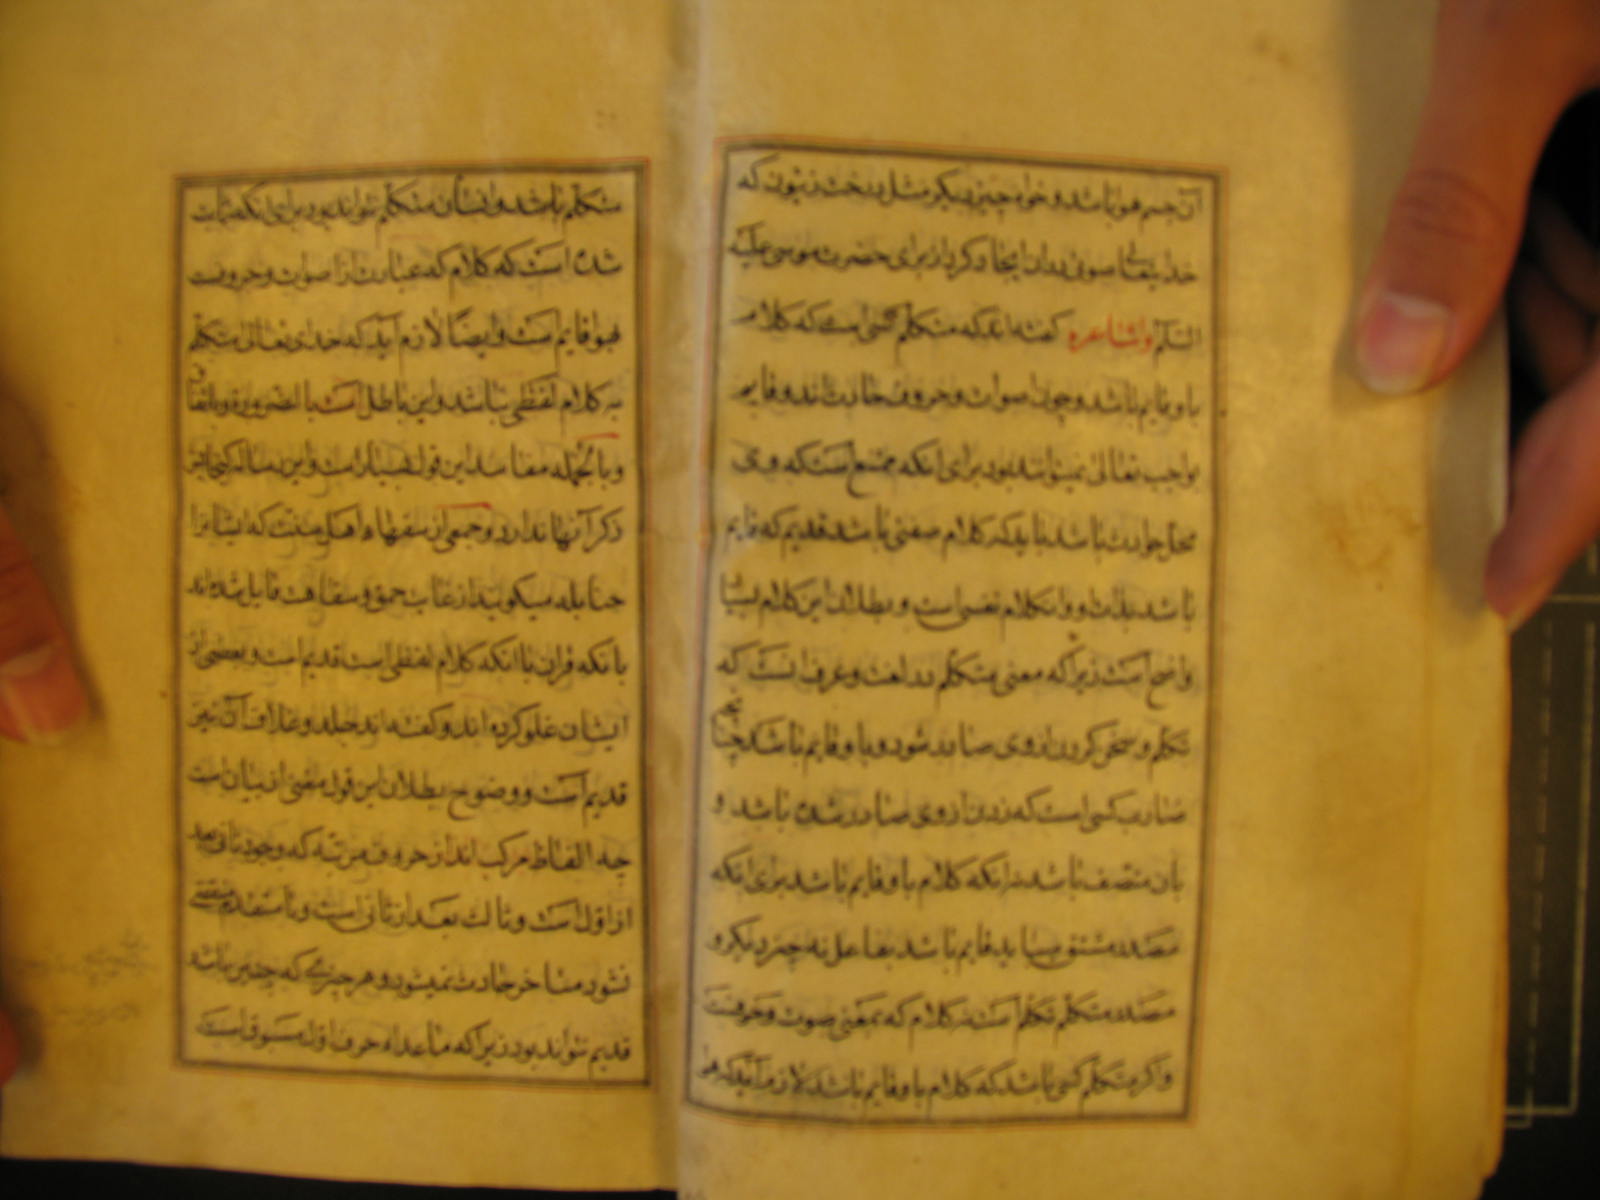 آن جسم هوا باشد و خواه چیز دیگر مثل درخت زیتون که
خدایتعالی صوتی در ان ایجاد کرد از برای حضرت موسی علیه
السلم واشاعره کفته اند که متکلم کسی است که کلام
باو قایم باشد و چون اصوات و حروف حادث اند و قایم
بواجب تعالی نمیتوانند بود برای انکه ممتنع است که وی
محل حوادث باشد باید که کلام صفتی باشد قدیم که قایم
باشد بذات وو ان کلام نفسی است و بطلان این کلام بسیا
واضح است زیرا که معنی متکلم در لغت و عرف انست که
تکلم و سخن کردن از وی صادر شود و باو قایم باشد چنانچه
ضارب کسی است که زدن از وی صادر شده باشد و
بان متصف باشد نه انکه کلام باو قایم باشد برای انکه
مصدر مشتق میباید قایم باشد بفاعل نه چیز دیگر و
مصدر متکلم تکلم است نه کلام که بمعنی صوت و حرفست
و اگر متکلم کسی باشد که کلام باو قایم باشد لازم آید که هوا
متکلم باشد و انسان متکلم نتواند بود برای انکه اثبات
شده است که کلام که عبارت از اصوات و حروفست
بهوا قایم است و ایضًا لازم آید که خدای تعالی متکلم
به کلام لفظی نباشد و این باطل است با لضروره و باتفاق
و بالجمله مفاسد این قول بسیار است و این رساله کنجایش
ذکر آنها ندارد و جمعی از سفهاء اهل سنت که ایشانرا
حنابله میکویند از غایت حمق و سفاهت قایل شده اند
بانکه قران با انکه کلام لفظی است قدیم است و بعضی از
ایشان غلو کرده اند و کفته اند جلد و غلاف آن نیز
قدیم است و وضوح بطلان این قول مغنی از بیان است
چه الفاظ مرکب اند از حروف مرتبه که وجود ثانی بعد
از اول است و ثالث بعد از ثانی است و تا متقدم منقضی
نشود متاخر حادث نمیشود و هر چیزی که چنین باشد
قدیم نتواند بود زیرا که ماعداء حرف اول مسبوق است